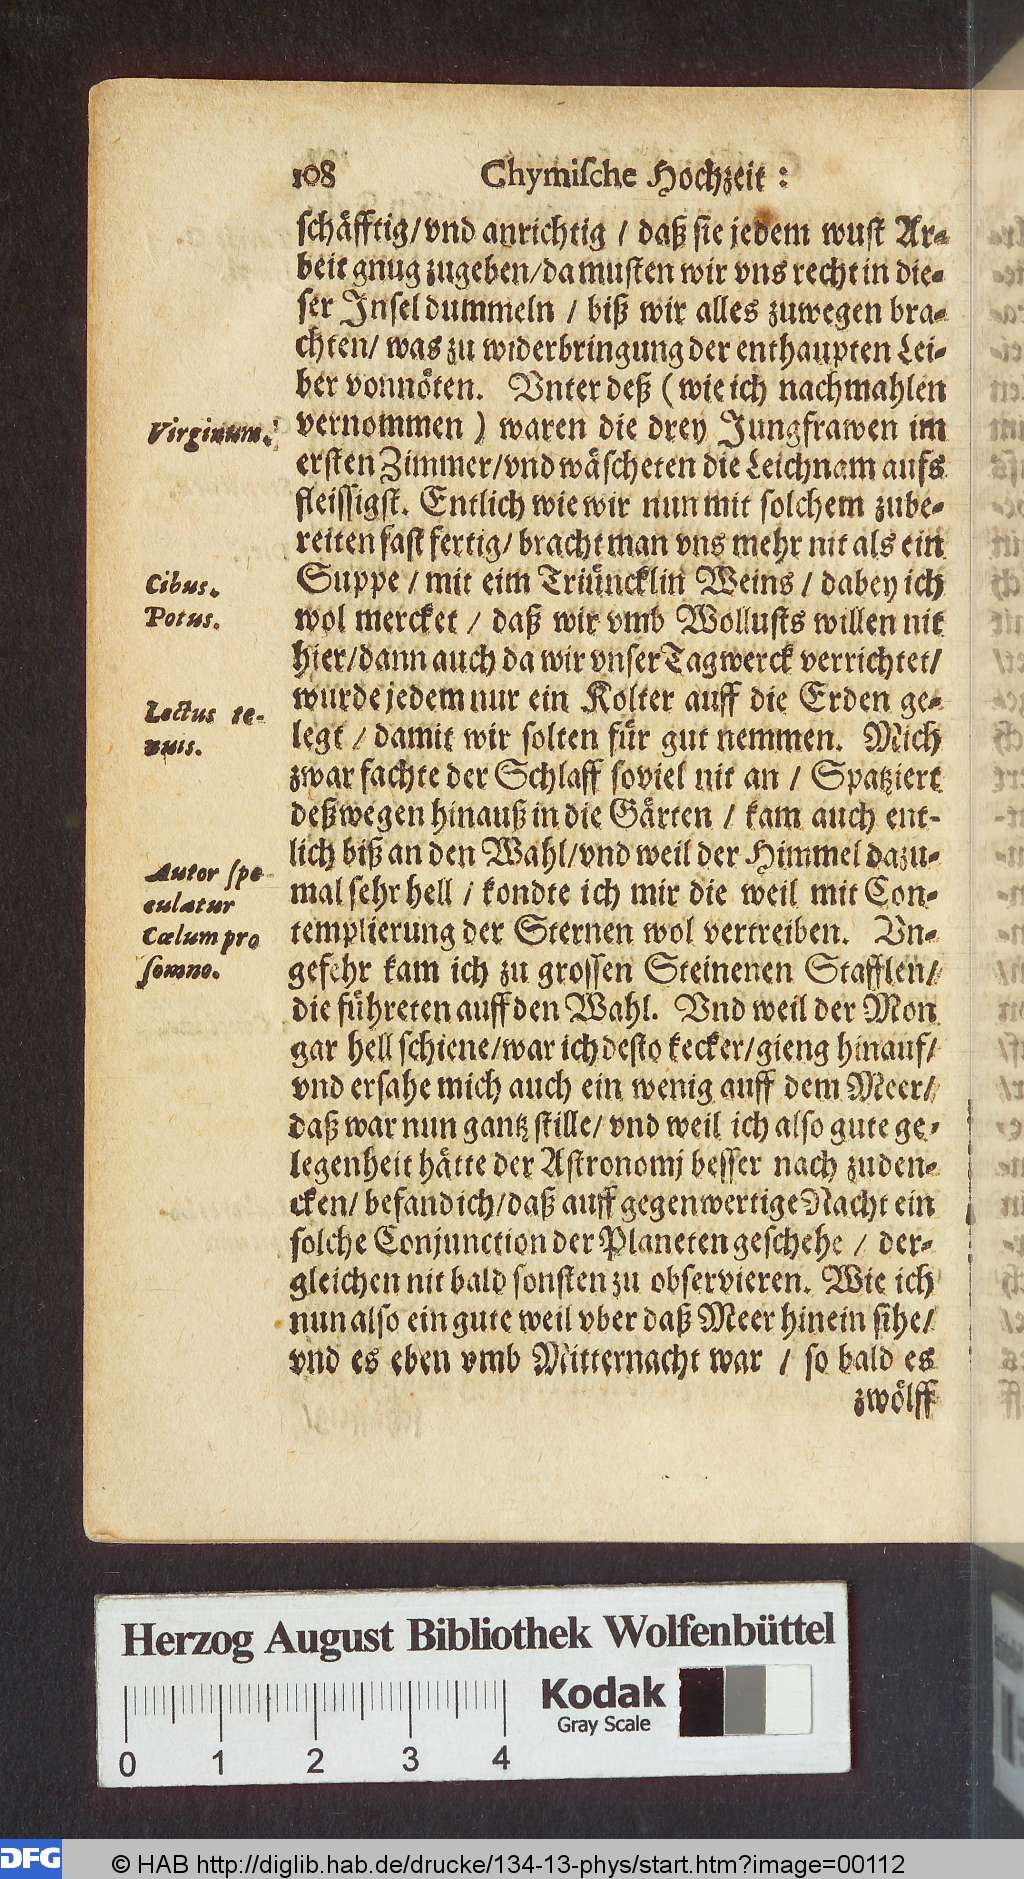 108 Chymiſche Hochzeit :
ſchäfftig/vnd anrichtig / daß ſie jedem wuſt Ar-
beit gnug zugeben/da muſten wir vns recht in die-
ſer Inſel dummeln / biß wir alles zuwegen bra-
chten/ was zu widerbringung der enthaupten Lei-
ber vonnöten. Vnter deß (wie ich nachmahlen
vernommen ) waren die drey Jungfrawen im
erſten Zimmer/vnd wäſcheten die Leichnam aufs
fleiſſigſt. Entlich wie wir nun mit ſolchem zube-
reiten faſt fertig/ bracht man vns mehr nit als ein
Suppe / mit eim Trüncklin Weins / dabey ich
wol mercket / daß wir vmb Wolluſts willen nit
hier/dann auch da wir vnſer Tagwerck verrichtet/
wurde jedem nur ein Kolter auff die Erden ge-
legt / damit wir ſolten für gut nemmen. Mich
zwar fachte der Schlaff ſoviel nit an / Spatziert
deßwegen hinauß in die Gärten / kam auch ent-
lich biß an den Wahl/vnd weil der Himmel dazu-
mal ſehr hell / kondte ich mir die weil mit Con-
templierung der Sternen wol vertreiben. Vn-
gefehr kam ich zu groſſen Steinenen Stafflen/
die führeten auff den Wahl. Vnd weil der Mon
gar hell ſchiene/war ich deſto kecker/gieng hinauf/
vnd erſahe mich auch ein wenig auff dem Meer/
daß war nun gantz ſtille/ vnd weil ich alſo gute ge-
legenheit hätte der Aſtronomj beſſer nach zuden-
cken/ befand ich/daß auff gegenwertige Nacht ein
ſolche Conjunction der Planeten geſchehe / der-
gleichen nit bald ſonſten zu obſervieren. Wie ich
nun alſo ein gute weil vber daß Meer hinein ſihe/
vnd es eben vmb Mitternacht war / ſo bald es
zwölff
Virginum.
Cibus.
Potus.
Lectus te-
nuis.
Autor ſpe-
culatur
Cœlum pro
ſomno.
Herzog August Bibliothek Wolfenbüttel
Kodak
Gray Scale
0 1 2 3 4
DFG
© HAB http://diglib.hab.de/drucke/134-13-phys/start.htm?image=00112